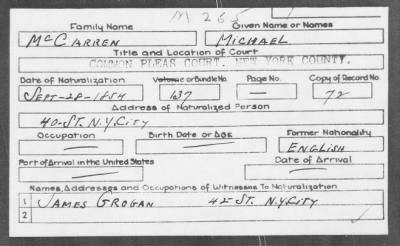 M 265
Family Name Given Name or Names
McCARREN MICHAEL
Title and Location of Court
COMMON PLEAS COURT, NEW YORK COUNTY.
Date of Naturalization Volume or Bundle No. Page No. Copy of Record No.
SEPT-28-1854 137 — 72
Address of Naturalized Person
40-ST. N.Y.CITY
Occupation Birth Date or Age Former Nationality
— — ENGLISH
Port of Arrival in the United States Date of Arrival
— —
Names, Addresses and Occupations of Witnesses To Naturalization
1 JAMES GROGAN 42-ST. N.Y.CITY
2